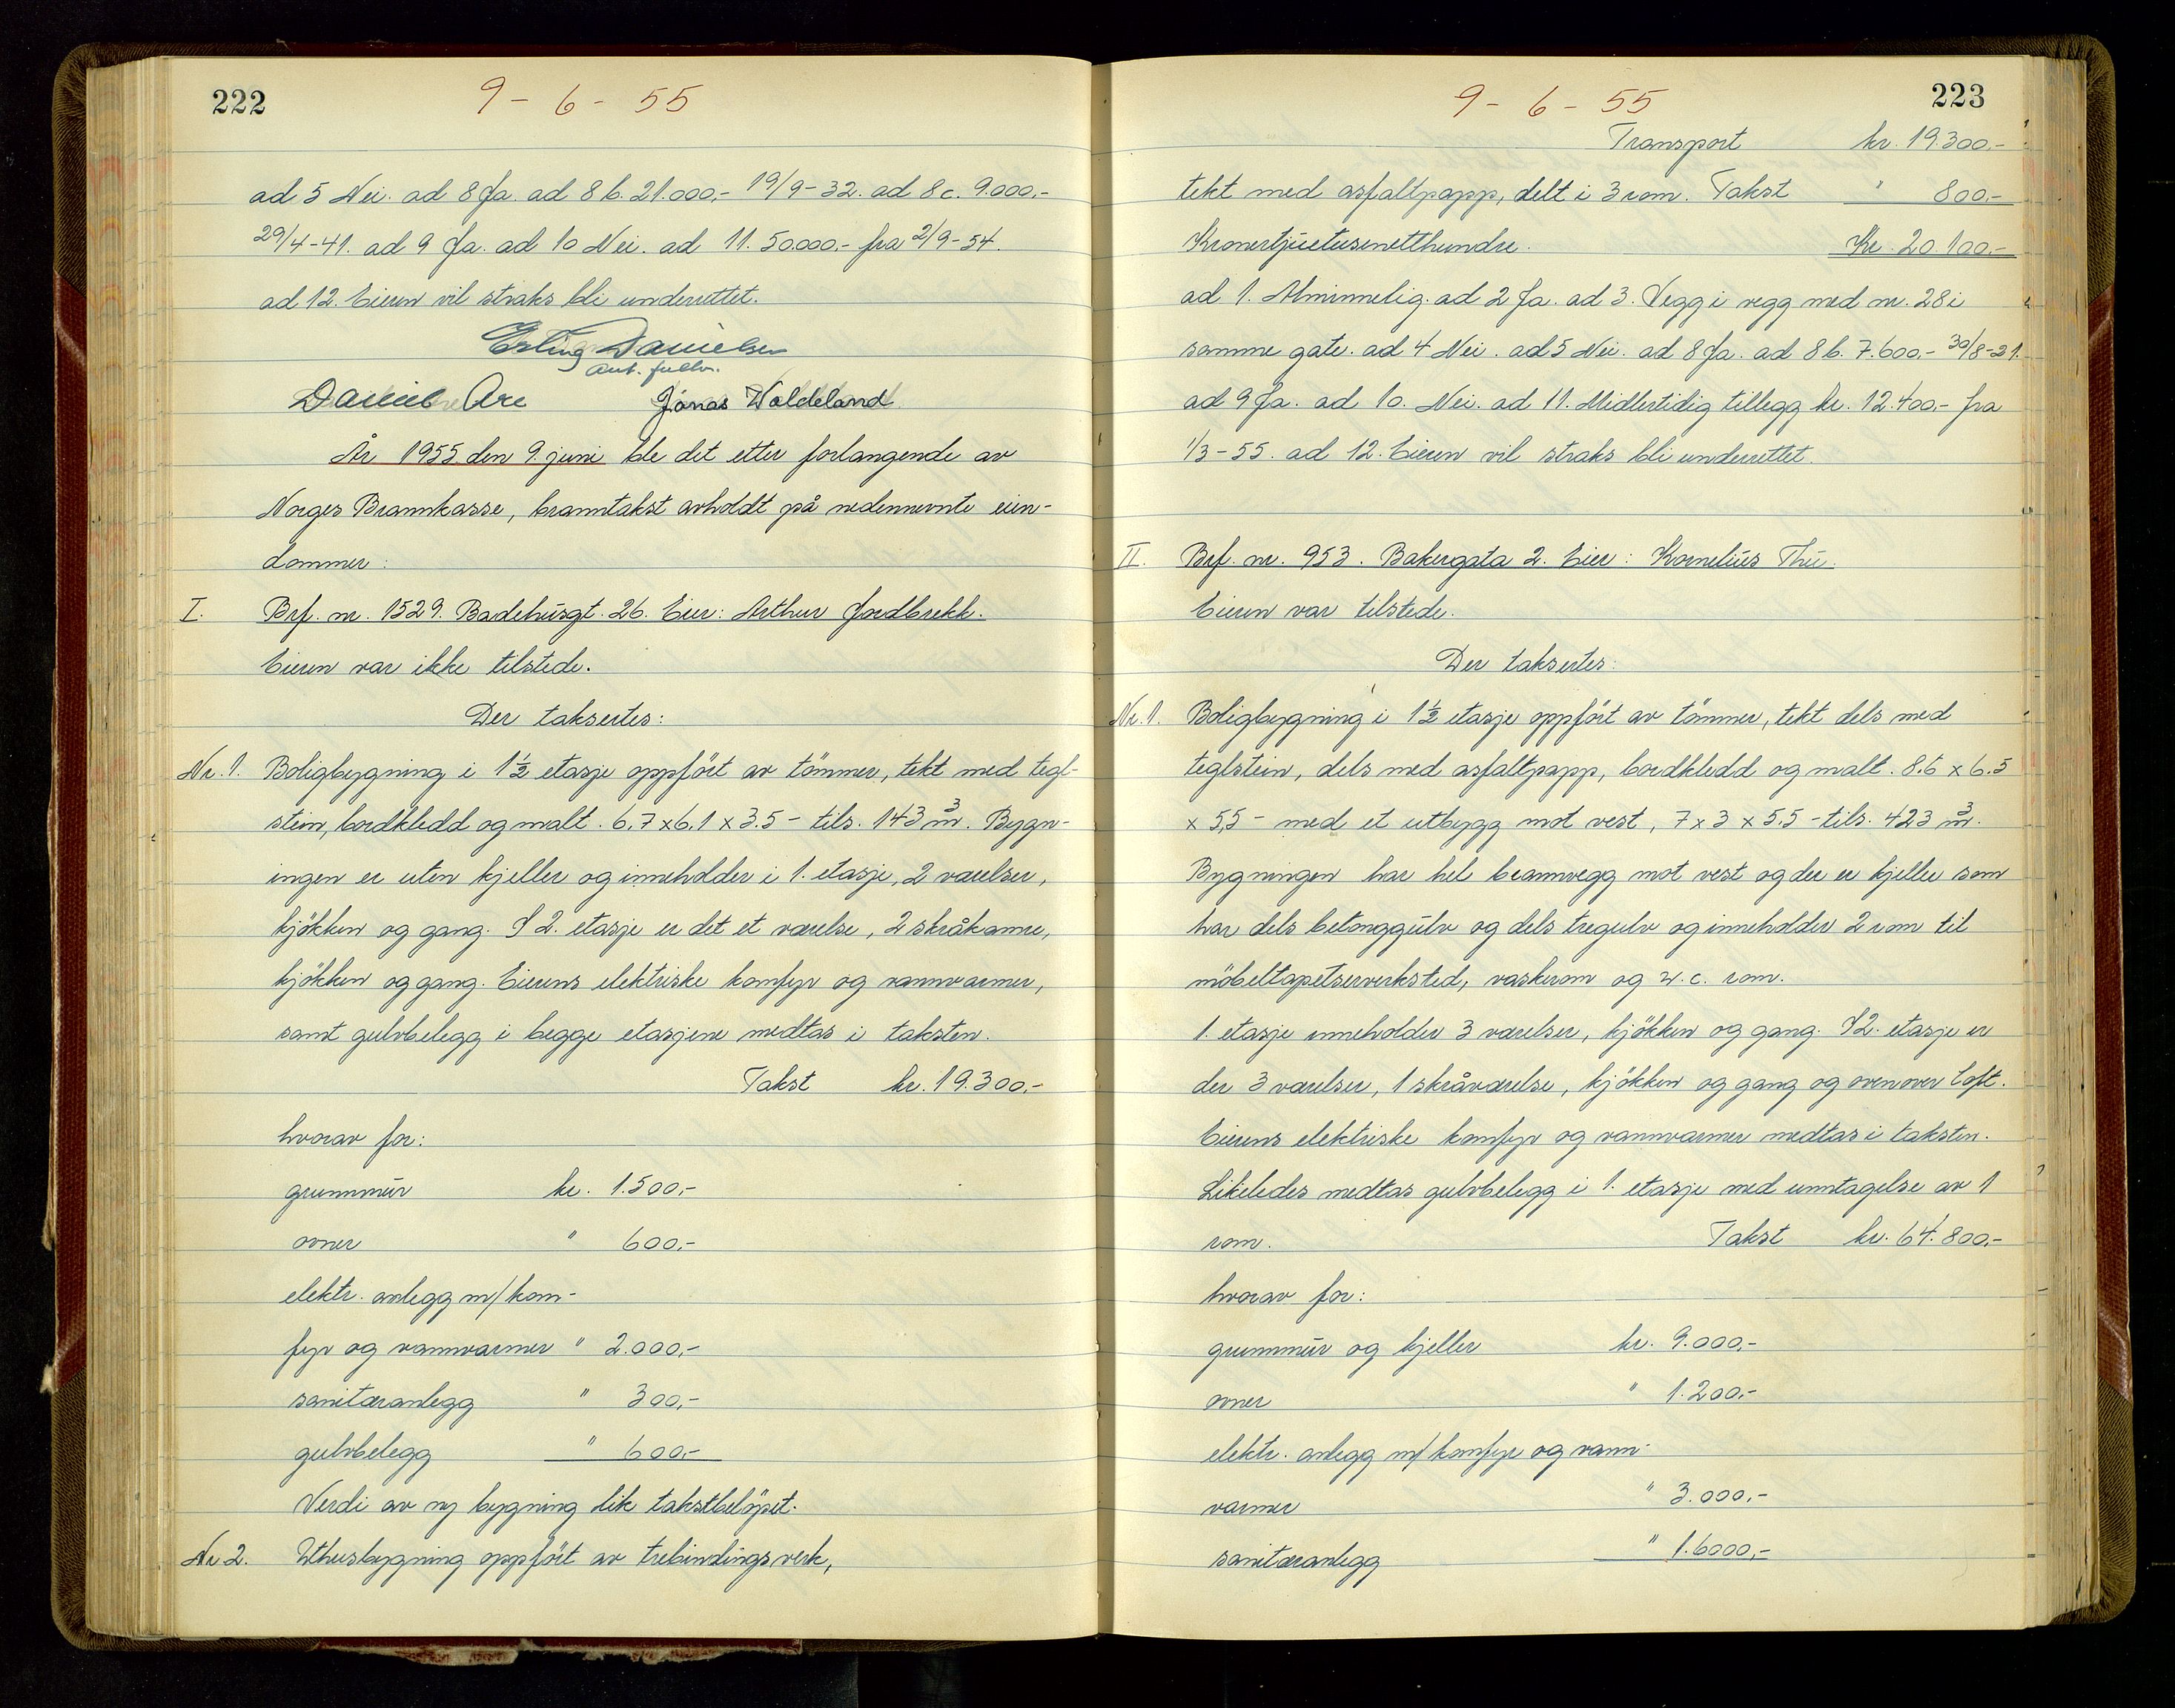 222
9 - 6 - 55
ad 5 Nei. ad 8 Ja. ad 8 b. 21.000,- 19/9-32. ad 8 c. 9.000,-
29/4-41. ad 9 Ja. ad 10 Nei. ad 11. 50000.- fra 2/9-54.
ad 12. Eieren vil straks bli underrettet.
Erling Danielsen
aut. fullm.
Daniel Are Jonas Waldeland
År 1955 den 9. juni ble det etter forlangende av
Norges Brannkasse, branntakst avholdt på nedennevnte eien-
dommer:
I. Brf. nr. 1529. Badehusgt. 26. Eier: Arthur Jordbrekk.
Eieren var ikke tilstede.
Der taksertes:
Nr. 1. Boligbygning i 1½ etasje oppført av tömmer, tekt med tegl-
stein, bordkledd og malt. 6,7 x 6.1 x 3.5 - tils. 143 m³. Bygn-
ingen er uten kjeller og inneholder i 1. etasje, 2 værelser,
kjökken og gang. I 2. etasje er det et værelse, 2 skråkamre,
kjökken og gang. Eierens elektriske komfyr og vannvarmer,
samt gulvbelegg i begge etasjene medtas i taksten.
Takst kr. 19.300,-
hvorav for:
grunnmur kr. 1.500,-
ovner " 600,-
elektr. anlegg m/kom-
fyr og vannvarmer " 2.000,-
sanitæranlegg " 300,-
gulvbelegg " 600,-
Verdi av ny bygning lik takstbelöpet.
Nr 2. Uthusbygning oppfört av trebindingsverk,
223
9 - 6 - 55
Transport kr. 19.300,-
tekt med asfaltpapp, delt i 3 rom. Takst " 800,-
Kronertjuetusenetthundre. Kr. 20.100,-
ad 1. Alminnelig. ad 2 Ja. ad 3. Vegg i vegg med nr. 28 i
samme gate. ad 4 Nei. ad 5 Nei. ad 8 Ja. ad 8 b. 7.600,- 30/8-21.
ad 9 Ja. ad 10. Nei. ad 11. Midlertidig tillegg kr. 12.400,- fra
1/3-55. ad 12. Eieren vil straks bli underrettet.
II. Brf. nr. 953. Bakergata 2. Eier: Kornelius Thu.
Eieren var tilstede.
Der taksertes:
Nr. 1. Boligbygning i 1½ etasje oppfört av tömmer, tekt dels med
teglstein, dels med asfaltpapp, bordkledd og malt. 8.6 x 6.5
x 5,5 - med et utbygg mot vest, 7 x 3 x 5.5 - tils. 423 m³.
Bygningen har hel brannvegg mot vest og der er kjeller som
har dels betonggulv og dels tregulv og inneholder 2 rom til
möbeltapetserverksted, vaskerom og w.c. rom.
1. etasje inneholder 3 værelser, kjökken og gang. I 2. etasje er
der 3 værelser, 1 skråværelse, kjökken og gang og ovenover loft.
Eierens elektriske komfyr og vannvarmer medtas i taksten.
Likeledes medtas gulvbelegg i 1. etasje med unntagelse av 1
rom. Takst kr. 64.800,-
hvorav for:
grunnmur og kjeller kr. 9.000,-
ovner " 1.200,-
elektr. anlegg m/komfyr og vann-
varmer " 3.000,-
sanitæranlegg " 1.6000,-